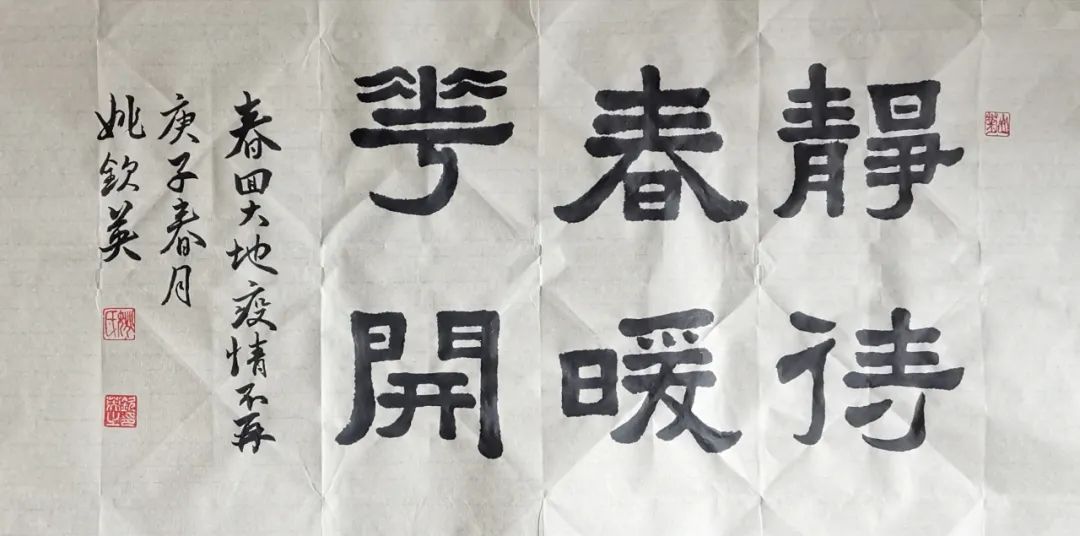 靜待
春暖
花開
春回大地疫情不再
庚子春月
姚欽英
姚氏